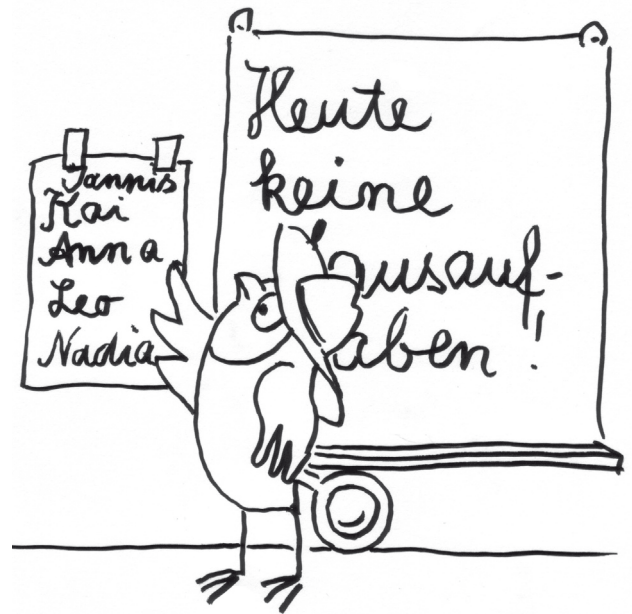 Jannis
Kai
Anna
Leo
Nadia
Heute
keine
ausauf-
aben!